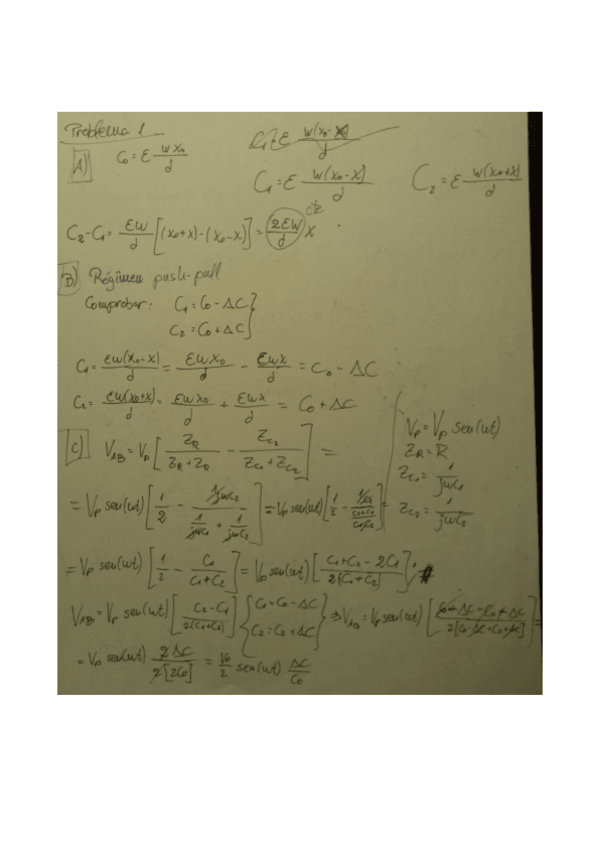 Problema 1
C₁ = ε W(x₀-x)/d
A) C₀ = ε W x₀/d
C₁ = ε W(x₀-x)/d    C₂ = ε W(x₀+x)/d
C₂-C₁ = εW/d [(x₀+x)-(x₀-x)] = 2εW/d x    cte
B) Régimen push-pull
Comprobar: C₁ = C₀ - ΔC
C₂ = C₀ + ΔC }
C₁ = εW(x₀-x)/d = εWx₀/d - εWx/d = C₀ - ΔC
C₂ = εW(x₀+x)/d = εWx₀/d + εWx/d = C₀ + ΔC
C) V_AB = V_P [Z_R/(Z_R+Z_R) - Z_C₂/(Z_C₁+Z_C₂)] =
V_P = V_P sen(wt)
Z_R = R
Z_C₁ = 1/jwC₁
Z_C₂ = 1/jwC₂
= V_P sen(wt) [1/2 - (1/jwC₂)/(1/jwC₁ + 1/jwC₂)] = V_P sen(wt) [1/2 - (1/C₂)/((C₁+C₂)/(C₁C₂))] =
= V_P sen(wt) [1/2 - C₁/(C₁+C₂)] = V_P sen(wt) [(C₁+C₂-2C₁)/(2(C₁+C₂))]
V_AB = V_P sen(wt) [(C₂-C₁)/(2(C₁+C₂))] { C₁=C₀-ΔC C₂=C₀+ΔC } ⇒ V_AB = V_P sen(wt) [(C₀+ΔC-C₀+ΔC)/(2[C₀-ΔC+C₀+ΔC])] =
= V_P sen(wt) 2ΔC/(2[2C₀]) = V_P/2 sen(wt) ΔC/C₀